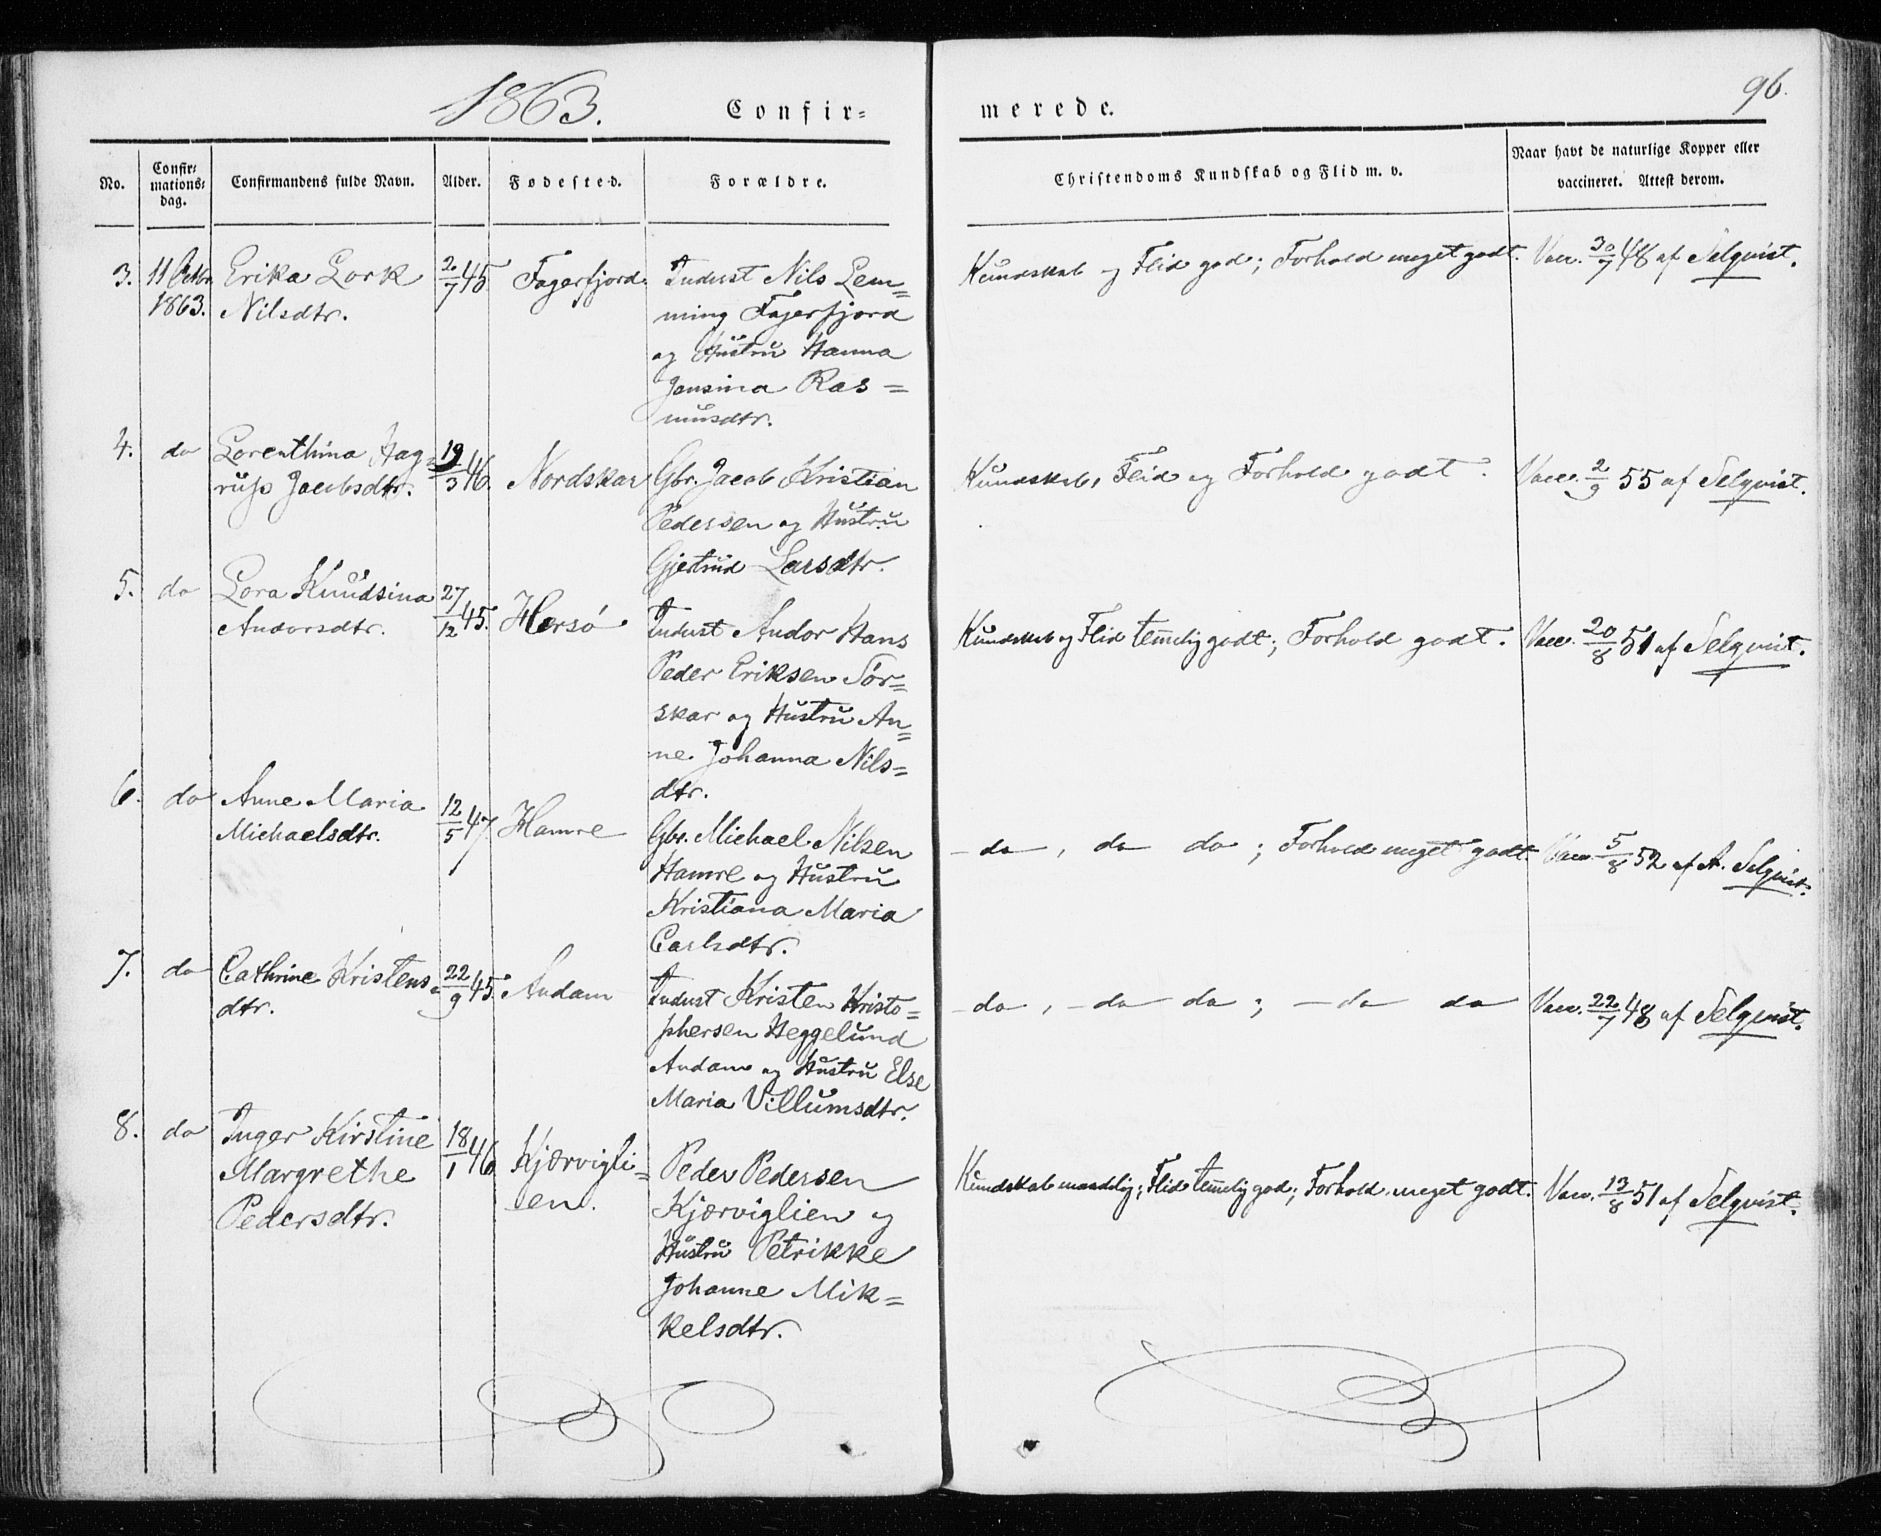 1863.
Confir=
merede.
96.
No.
Confir:
mations:
dag.
Confirmandens fulde Navn.
Alder.
Fødested.
Forældre.
Christendoms Kundskab og Flid m. v.
Naar havt de naturlige Kopper eller
vaccineret. Attest derom.
3. 11 Octbr Erika Lork 2/7 45 Fagerfjord
1863. Nilsdtr.
Indust Nils Lem=
ming Fagerfjord
og Hustru Hanna
Jensina Ras=
musdtr.
Kundskab og Flid god; Forhold meget godt. Vacc. 30/7 48 af Selqvist.
4. do Lorenthina Hag= 19/3 46. Nordskar
rup Jacobsdtr.
Gbr. Jacob Kristian
Pedersen og Hustru
Gjertrud Larsdtr.
Kundskab, Flid og Forhold godt. Vacc. 2/9 55 af Selqvist.
5. do Lora Knudsina 27/12 45. Hersö
Andorsdtr.
Indust Andor Hans
Peder Eriksen Sör=
skar og Hustru An=
ne Johanna Nils=
dtr.
Kundskab og Flid temelig godt; Forhold godt. Vacc. 20/8 51 af Selqvist.
6. do Anne Maria 12/5 47. Hamre
Michaelsdtr.
Gbr. Michael Nilsen
Hamre og Hustru
Kristiana Maria
Carlsdtr.
- do , do do ; Forhold meget godt. Vacc. 5/8 52 af A. Selqvist.
7. do Cathrine Kristens= 22/9 45. Andam
dtr.
Indust Kristen Kristo=
phersen Heggelund
Andam og Hustru Else
Maria Villumsdtr.
- do , - do do ; - do do Vacc. 22/7 48 af Selqvist.
8. do Inger Kirstine 18/1 46 Kjærvigli=
Margrethe en.
Pedersdtr.
Peder Pedersen
Kjærviglien og
Hustru Petrikke
Johanne Mik=
kelsdtr.
Kundskab maadelig; Flid temelig god; Forhold meget godt. Vacc. 13/8 51 af Selqvist.